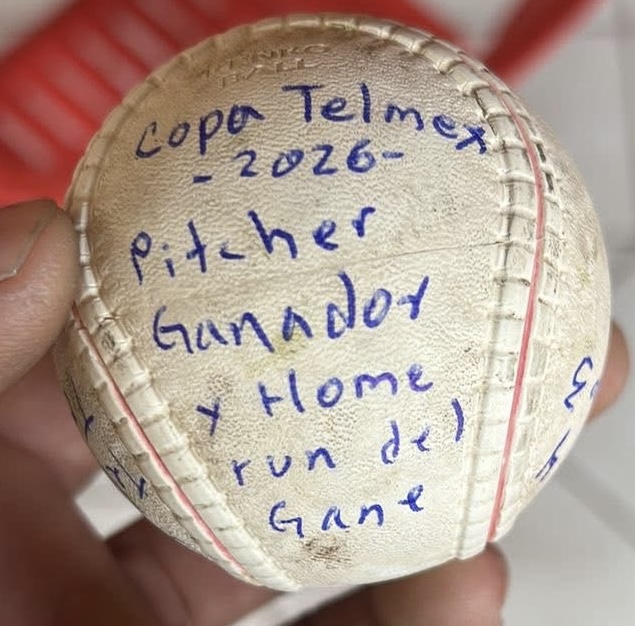 BALL
Copa Telmex
- 2026 -
Pitcher
Ganador
y Home
run del
Gane